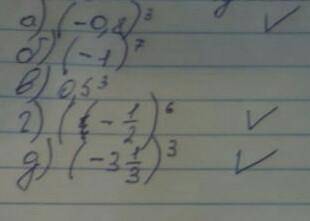 а) (-0,8)³ ✓
б) (-1)⁷
в) 0,5³
г) (-1/2)⁶ ✓
д) (-3 1/3)³ ✓